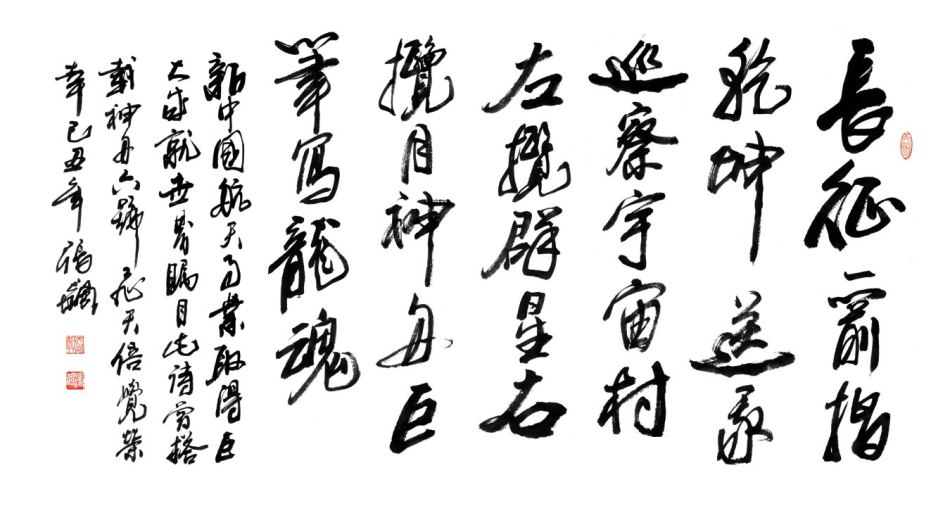 長征一箭指
乾坤送我
巡察宇宙村
左攬群星右
攬月神舟巨
筆寫龍魂
新中國航天事業取得巨
大成就世界瞩目此詩曾搭
載神舟六號飛天倍覺榮
幸己丑年張飆